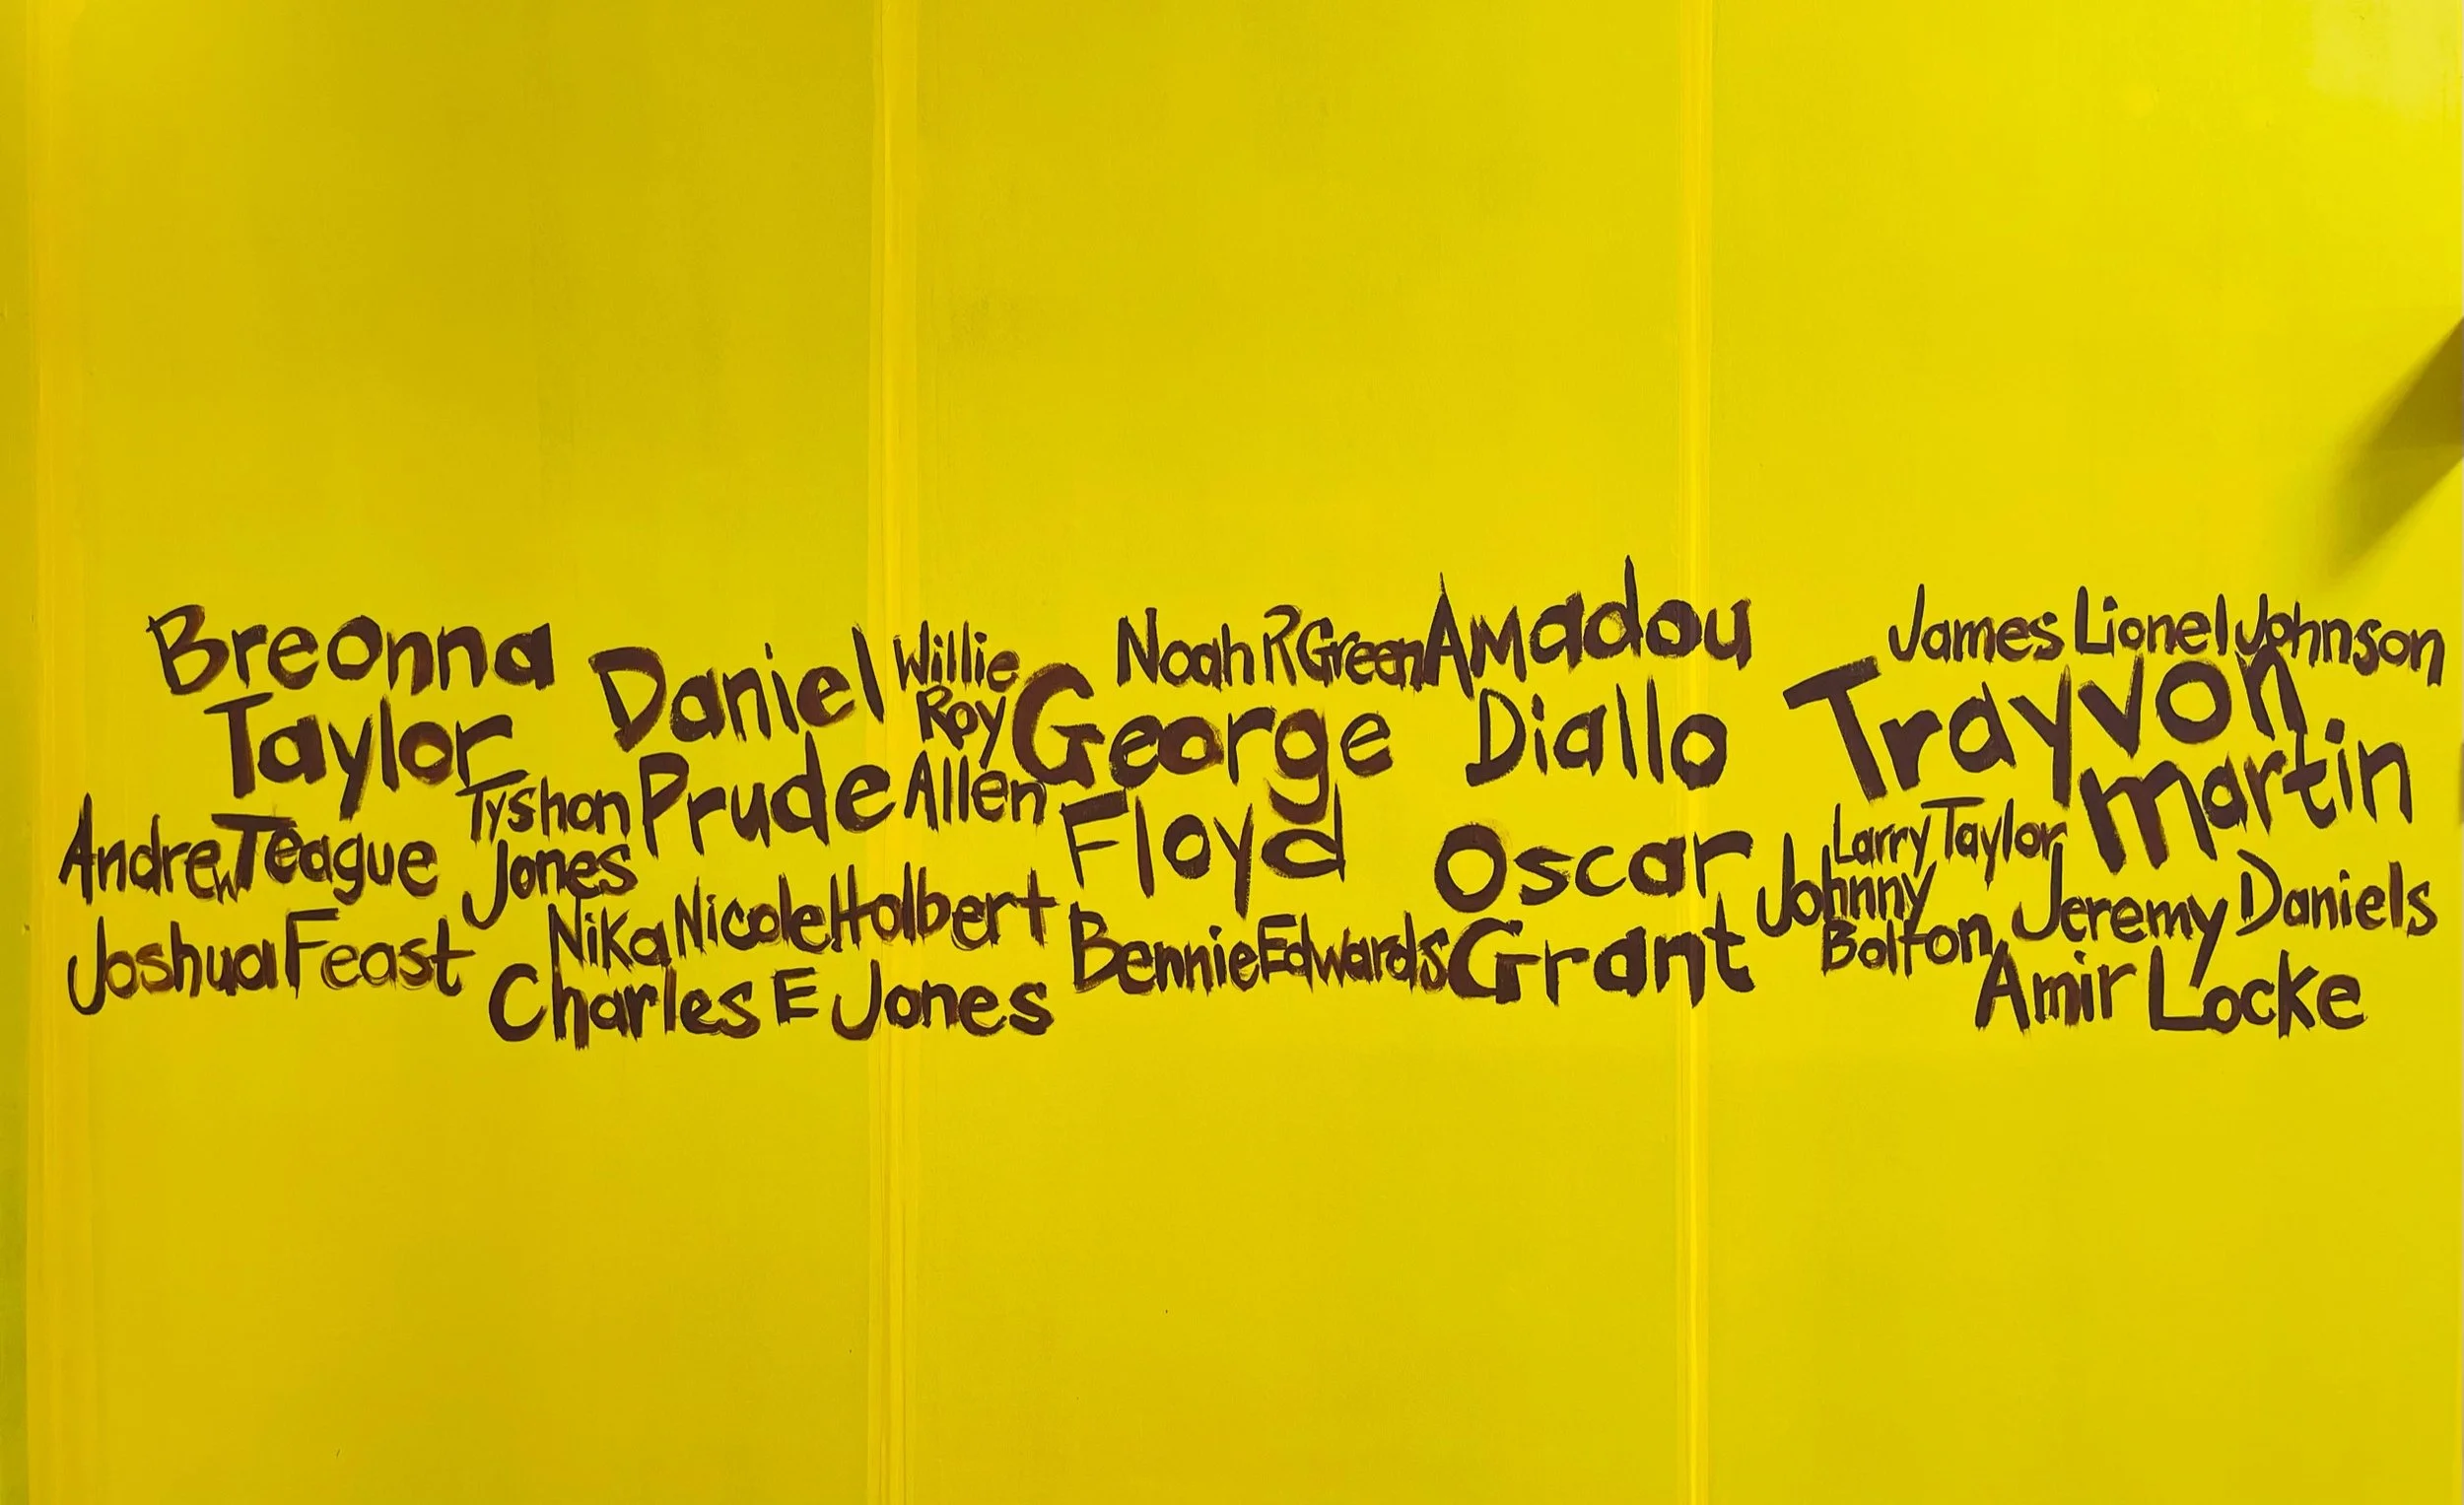 Breonna
Taylor
Daniel
Prude
Willie
Roy
Allen
Noah R Green
Amadou
Diallo
James Lionel Johnson
George
Floyd
Trayvon
Martin
Tyshon
Jones
Andrew Teague
Larry Taylor
Oscar
Grant
Johnny
Bolton
Jeremy Daniels
Joshua Feast
Nika Nicole Holbert
Bennie Edwards
Charles E Jones
Amir Locke